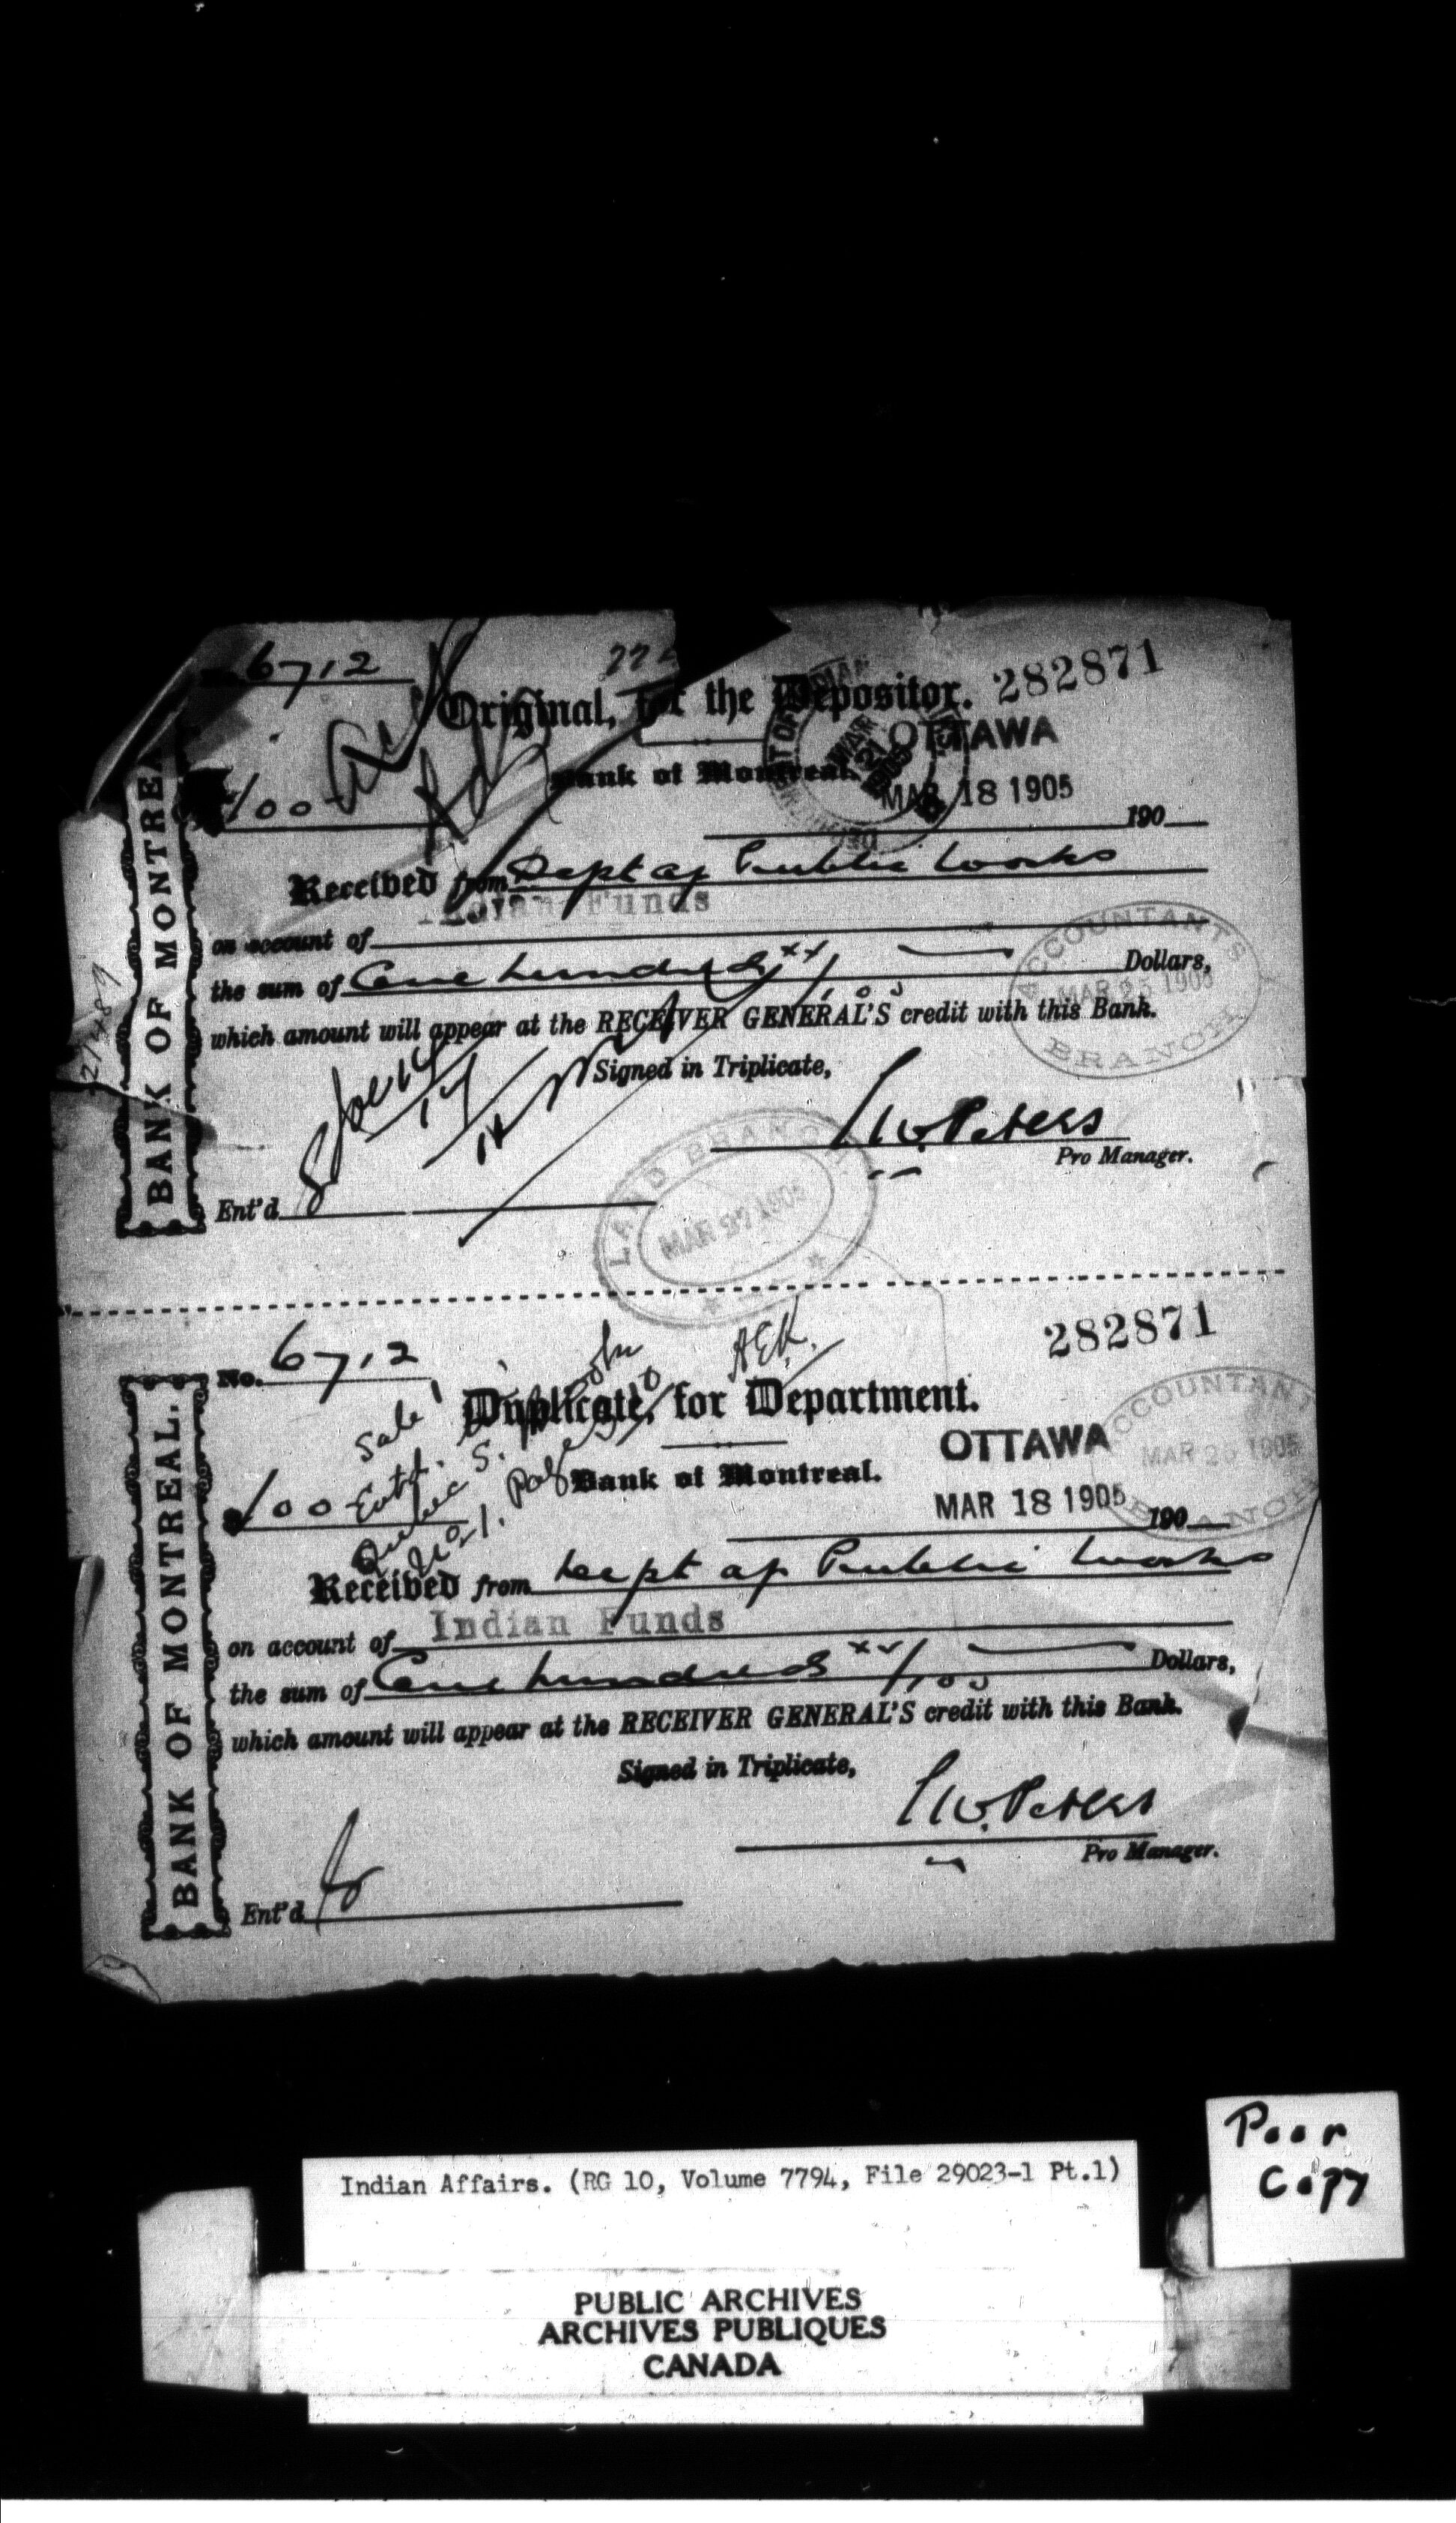 6712
Original, for the Depositor. 282871
OTTAWA
Bank of Montreal.
MAR 18 1905
100
190
Received from Dept of Public Works
Indian Funds
on account of
the sum of One hundred xx/100 Dollars,
which amount will appear at the RECEIVER GENERAL'S credit with this Bank.
Signed in Triplicate,
Peters
Pro Manager.
Ent'd
BANK OF MONTREA
ACCOUNTANTS
MAR 25 1905
BRANCH
LAND BRANCH
MAR 27 1905
282871
No. 6712
Duplicate, for Department.
A.E.K.
OTTAWA
Bank of Montreal.
MAR 18 1905
190
$100
Sale
Quebec S.
No 1. Page
Received from Dept of Public Works
on account of Indian Funds
the sum of One hundred xx/100 Dollars,
which amount will appear at the RECEIVER GENERAL'S credit with this Bank.
Signed in Triplicate,
Peters
Pro Manager.
Ent'd
BANK OF MONTREAL.
ACCOUNTANT
MAR 25 1905
BRANCH
Poor
Copy
Indian Affairs. (RG 10, Volume 7794, File 29023-1 Pt.1)
PUBLIC ARCHIVES
ARCHIVES PUBLIQUES
CANADA